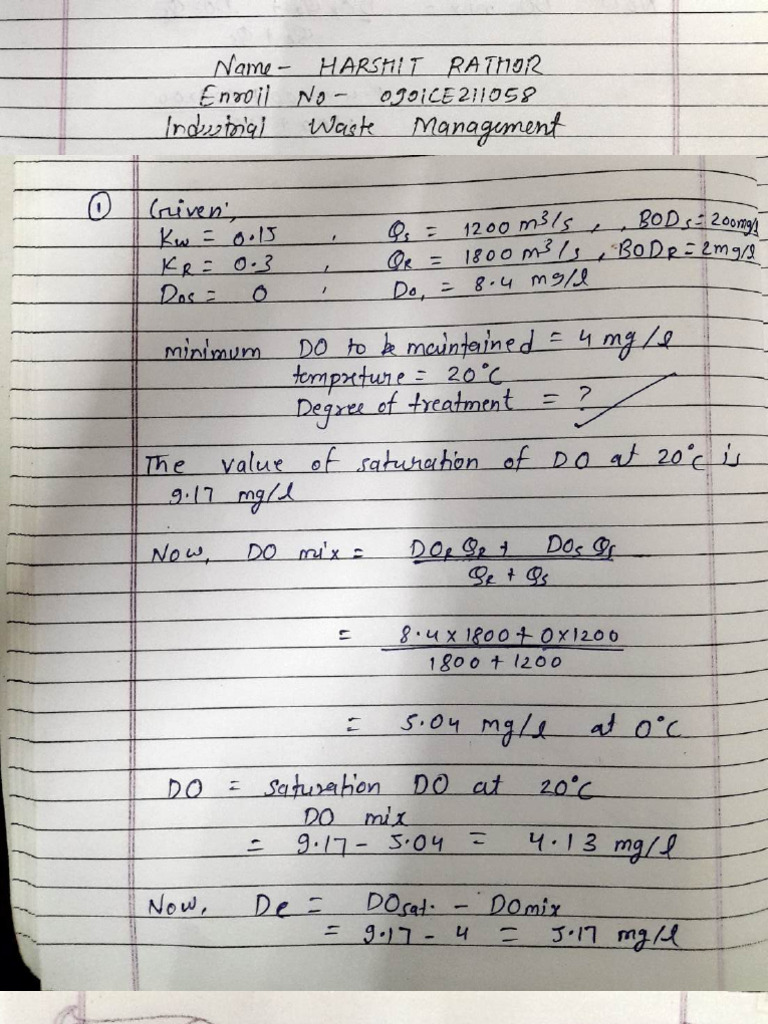 Name - HARSHIT RATHOR
Enroll No - 0901CE211058
Industrial Waste Management
① Given,
Kw = 0.15 , Qs = 1200 m³/s , BODs = 200mg/l
KR = 0.3 , QR = 1800 m³/s , BODR = 2mg/l
Dos = 0 , Do, = 8.4 mg/l
minimum DO to be maintained = 4 mg/l
tempreture = 20°C
Degree of treatment = ?
The value of saturation of DO at 20°C is
9.17 mg/l
Now, DO mix = DOR QR + DOs Qs
QR + Qs
= 8.4 x 1800 + 0 x 1200
1800 + 1200
= 5.04 mg/l at 0°C
DO = saturation DO at 20°C
DO mix
= 9.17 - 5.04 = 4.13 mg/l
Now, De = DOsat. - DOmix
= 9.17 - 4 = 5.17 mg/l